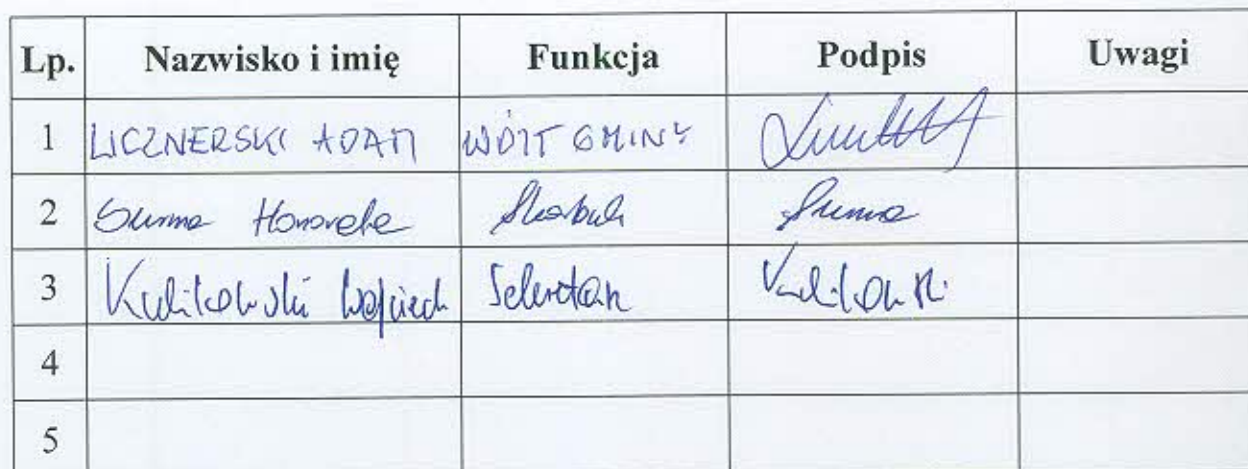 Lp. Nazwisko i imię Funkcja Podpis Uwagi
1 LICZNERSKI ADAM WÓJT GMINY
2 Summa Honorata Skarbnik Summa
3 Kulikowski Wojciech Sekretarz Kulikowski
4
5